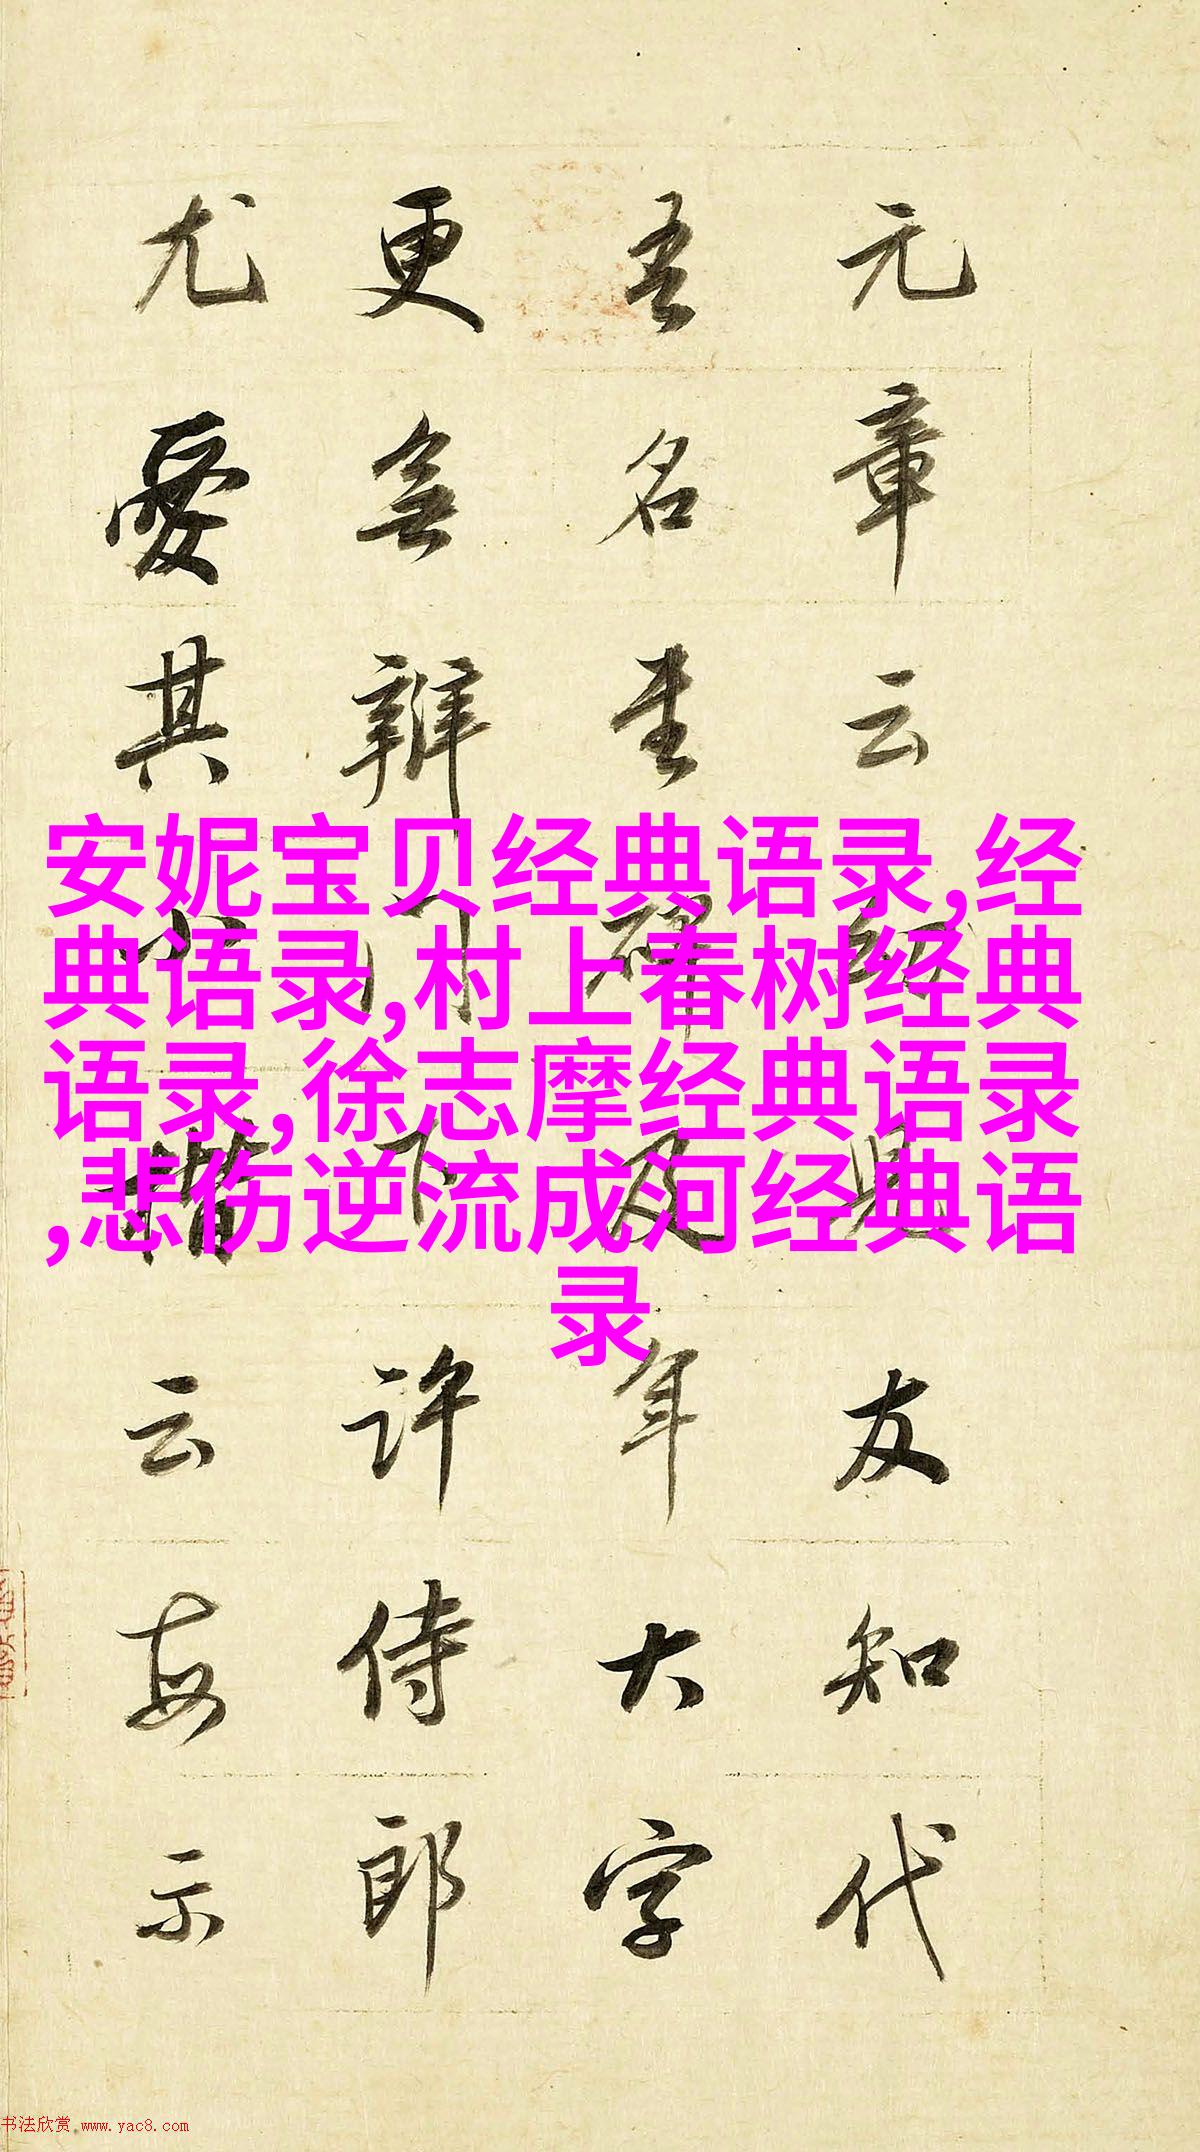 元章云是友知代
吾名碑及年大字
更無辨下許侍郎
尤愛其小楷云每示
安妮宝贝经典语录,经
典语录,村上春树经典
语录,徐志摩经典语录
,悲伤逆流成河经典语
录
书法欣赏 www.yac8.com